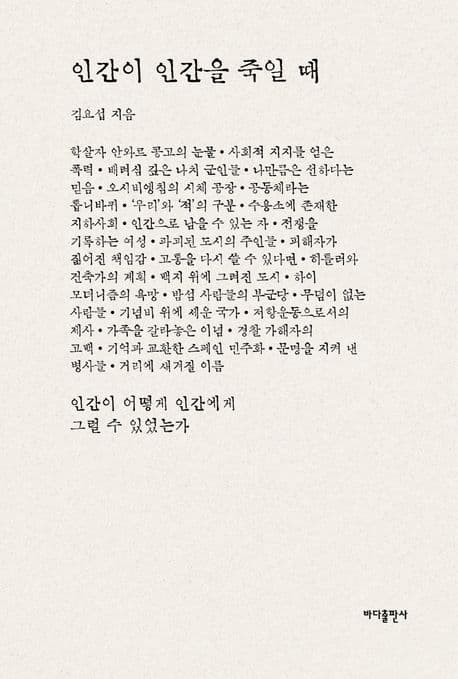 인간이 인간을 죽일 때
김요섭 지음
학살자 안와르 콩고의 눈물 • 사회적 지지를 얻은
폭력 • 배려심 깊은 나치 군인들 • 나만큼은 선하다는
믿음 • 오시비엥침의 시체 공장 • 공동체라는
톱니바퀴 • ‘우리’와 ‘적’의 구분 • 수용소에 존재한
지하사회 • 인간으로 남을 수 있는 자 • 전쟁을
기록하는 여성 • 파괴된 도시의 주인들 • 피해자가
짊어진 책임감 • 고통을 다시 쓸 수 있다면 • 히틀러와
건축가의 계획 • 백지 위에 그려진 도시 • 하이
모더니즘의 욕망 • 밤섬 사람들의 부군당 • 무덤이 없는
사람들 • 기념비 위에 세운 국가 • 저항운동으로서의
제사 • 가족을 갈라놓은 이념 • 경찰 가해자의
고백 • 기억과 교환한 스페인 민주화 • 문명을 지켜 낸
병사들 • 거리에 새겨질 이름
인간이 어떻게 인간에게
그럴 수 있었는가
바다출판사